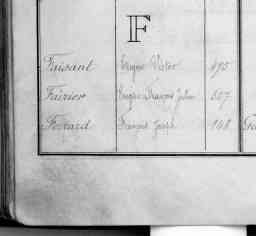 F
Faisant Eugène Victor 495
Favrier Eugène François Julien 507
Ferrard François Joseph 148